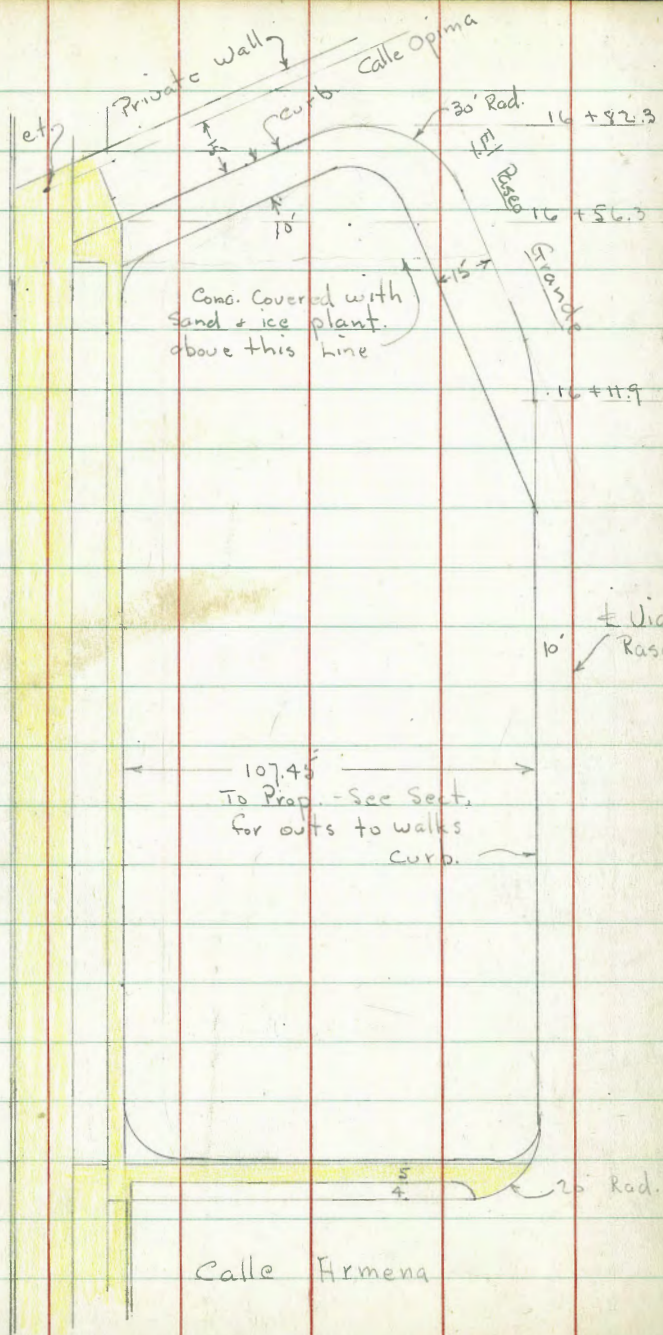 Private Wall
Calle Opima
Curb.
30' Rad.
16 + 82.3
et.
15'
El Paseo
Grande
16 + 56.3
10'
15'
Conc. Covered with
Sand & ice plant.
above this Line
16 + 11.9
10'
107.45'
To Prop. - See Sect.
for outs to walks
Curb.
4.5
20' Rad.
Calle Armena